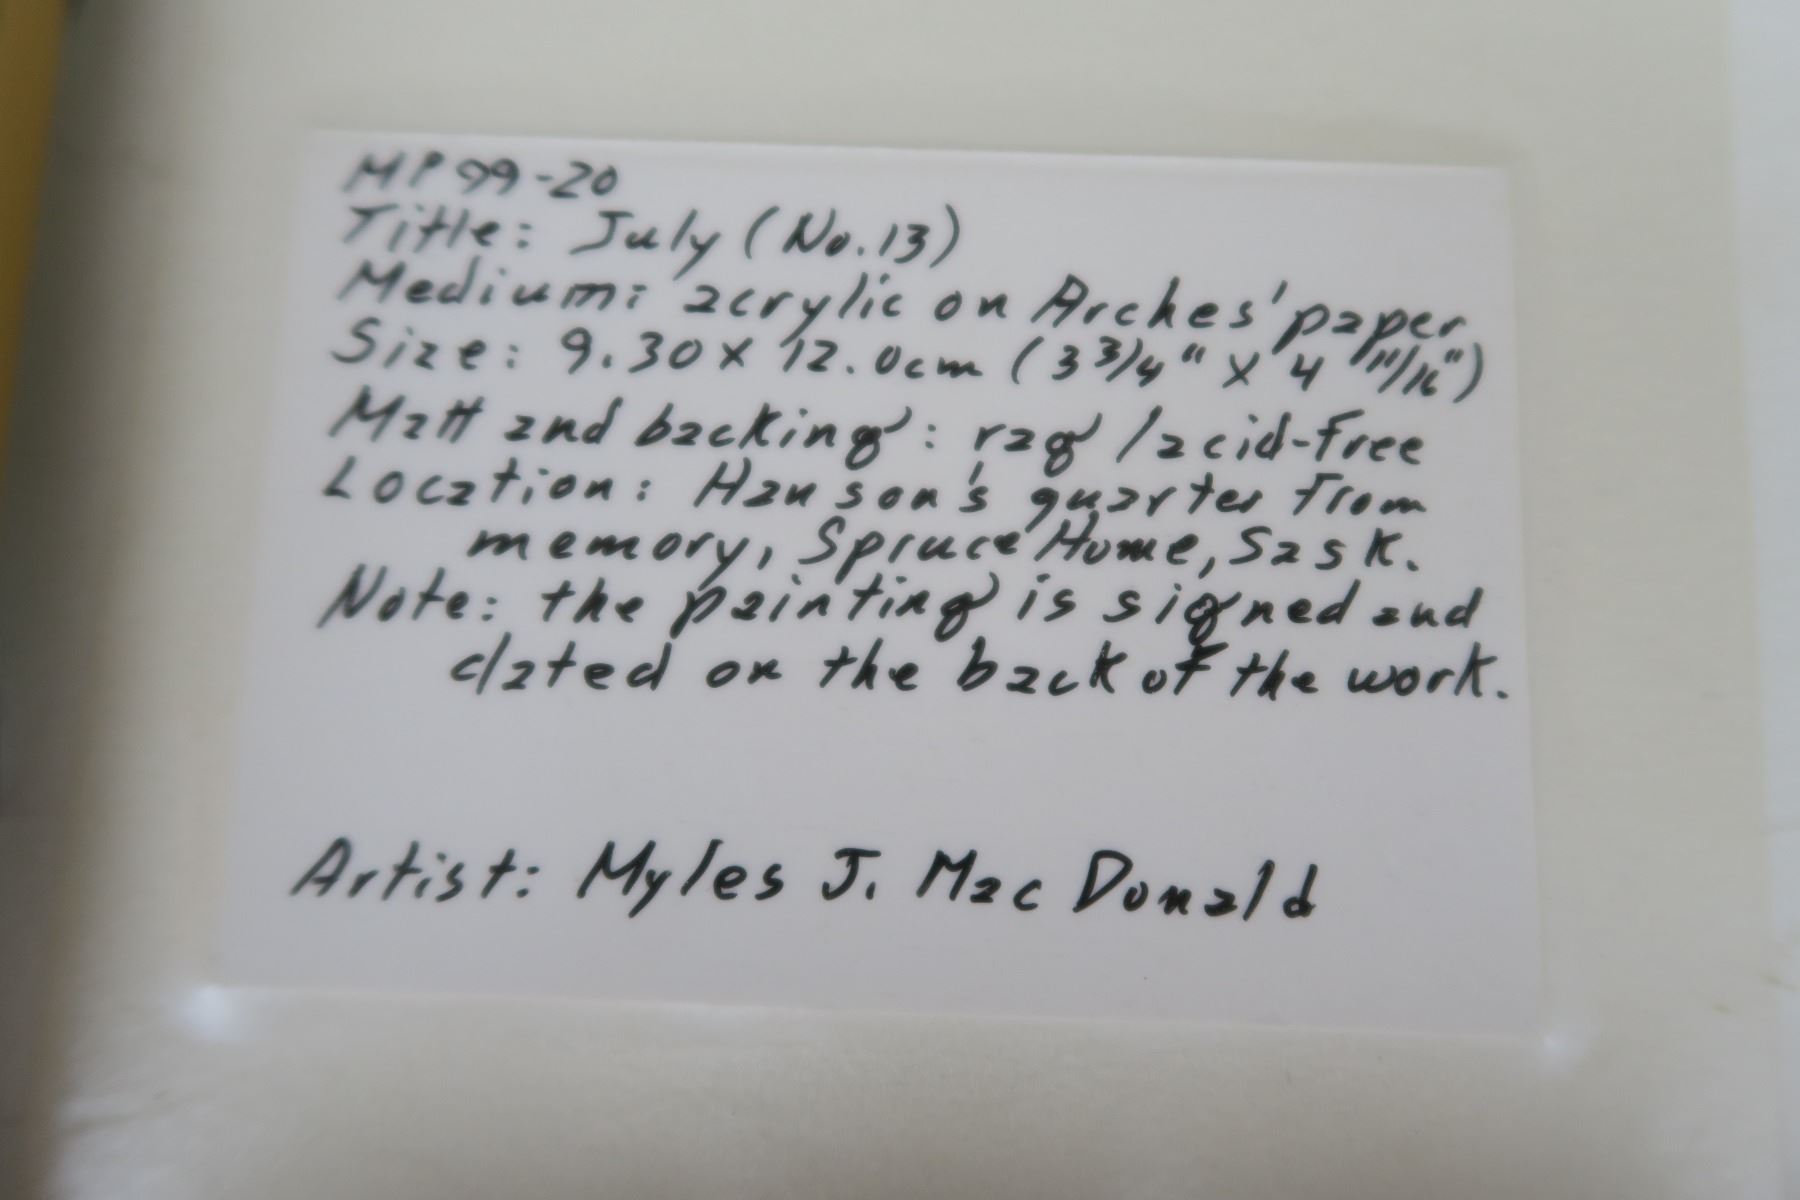 MP99-20
Title: July (No.13)
Medium: acrylic on Arches' paper
Size: 9.30 x 12.0cm (3 3/4" x 4 11/16")
Matt and backing: rag/acid-free
Location: Hanson's quarter from
memory, Spruce Home, Sask.
Note: the painting is signed and
dated on the back of the work.
Artist: Myles J. MacDonald